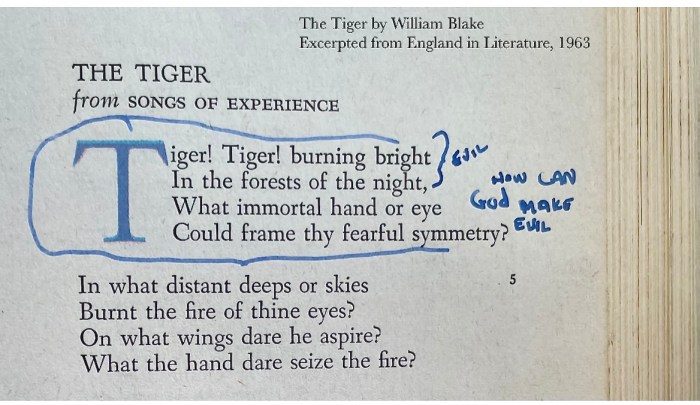 The Tiger by William Blake
Excerpted from England in Literature, 1963
THE TIGER
from SONGS OF EXPERIENCE
Tiger! Tiger! burning bright
In the forests of the night,
What immortal hand or eye
Could frame thy fearful symmetry?
EVIL
HOW CAN
God MAKE
EVIL
In what distant deeps or skies 5
Burnt the fire of thine eyes?
On what wings dare he aspire?
What the hand dare seize the fire?